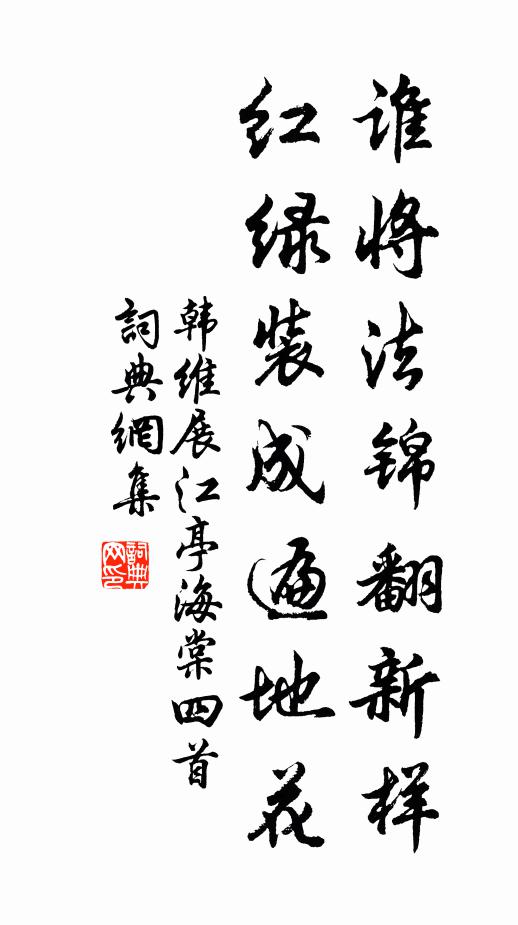 谁将法锦翻新样
红绿装成遍地花
韩维展江亭海棠四首
詞典網集
詞典网印